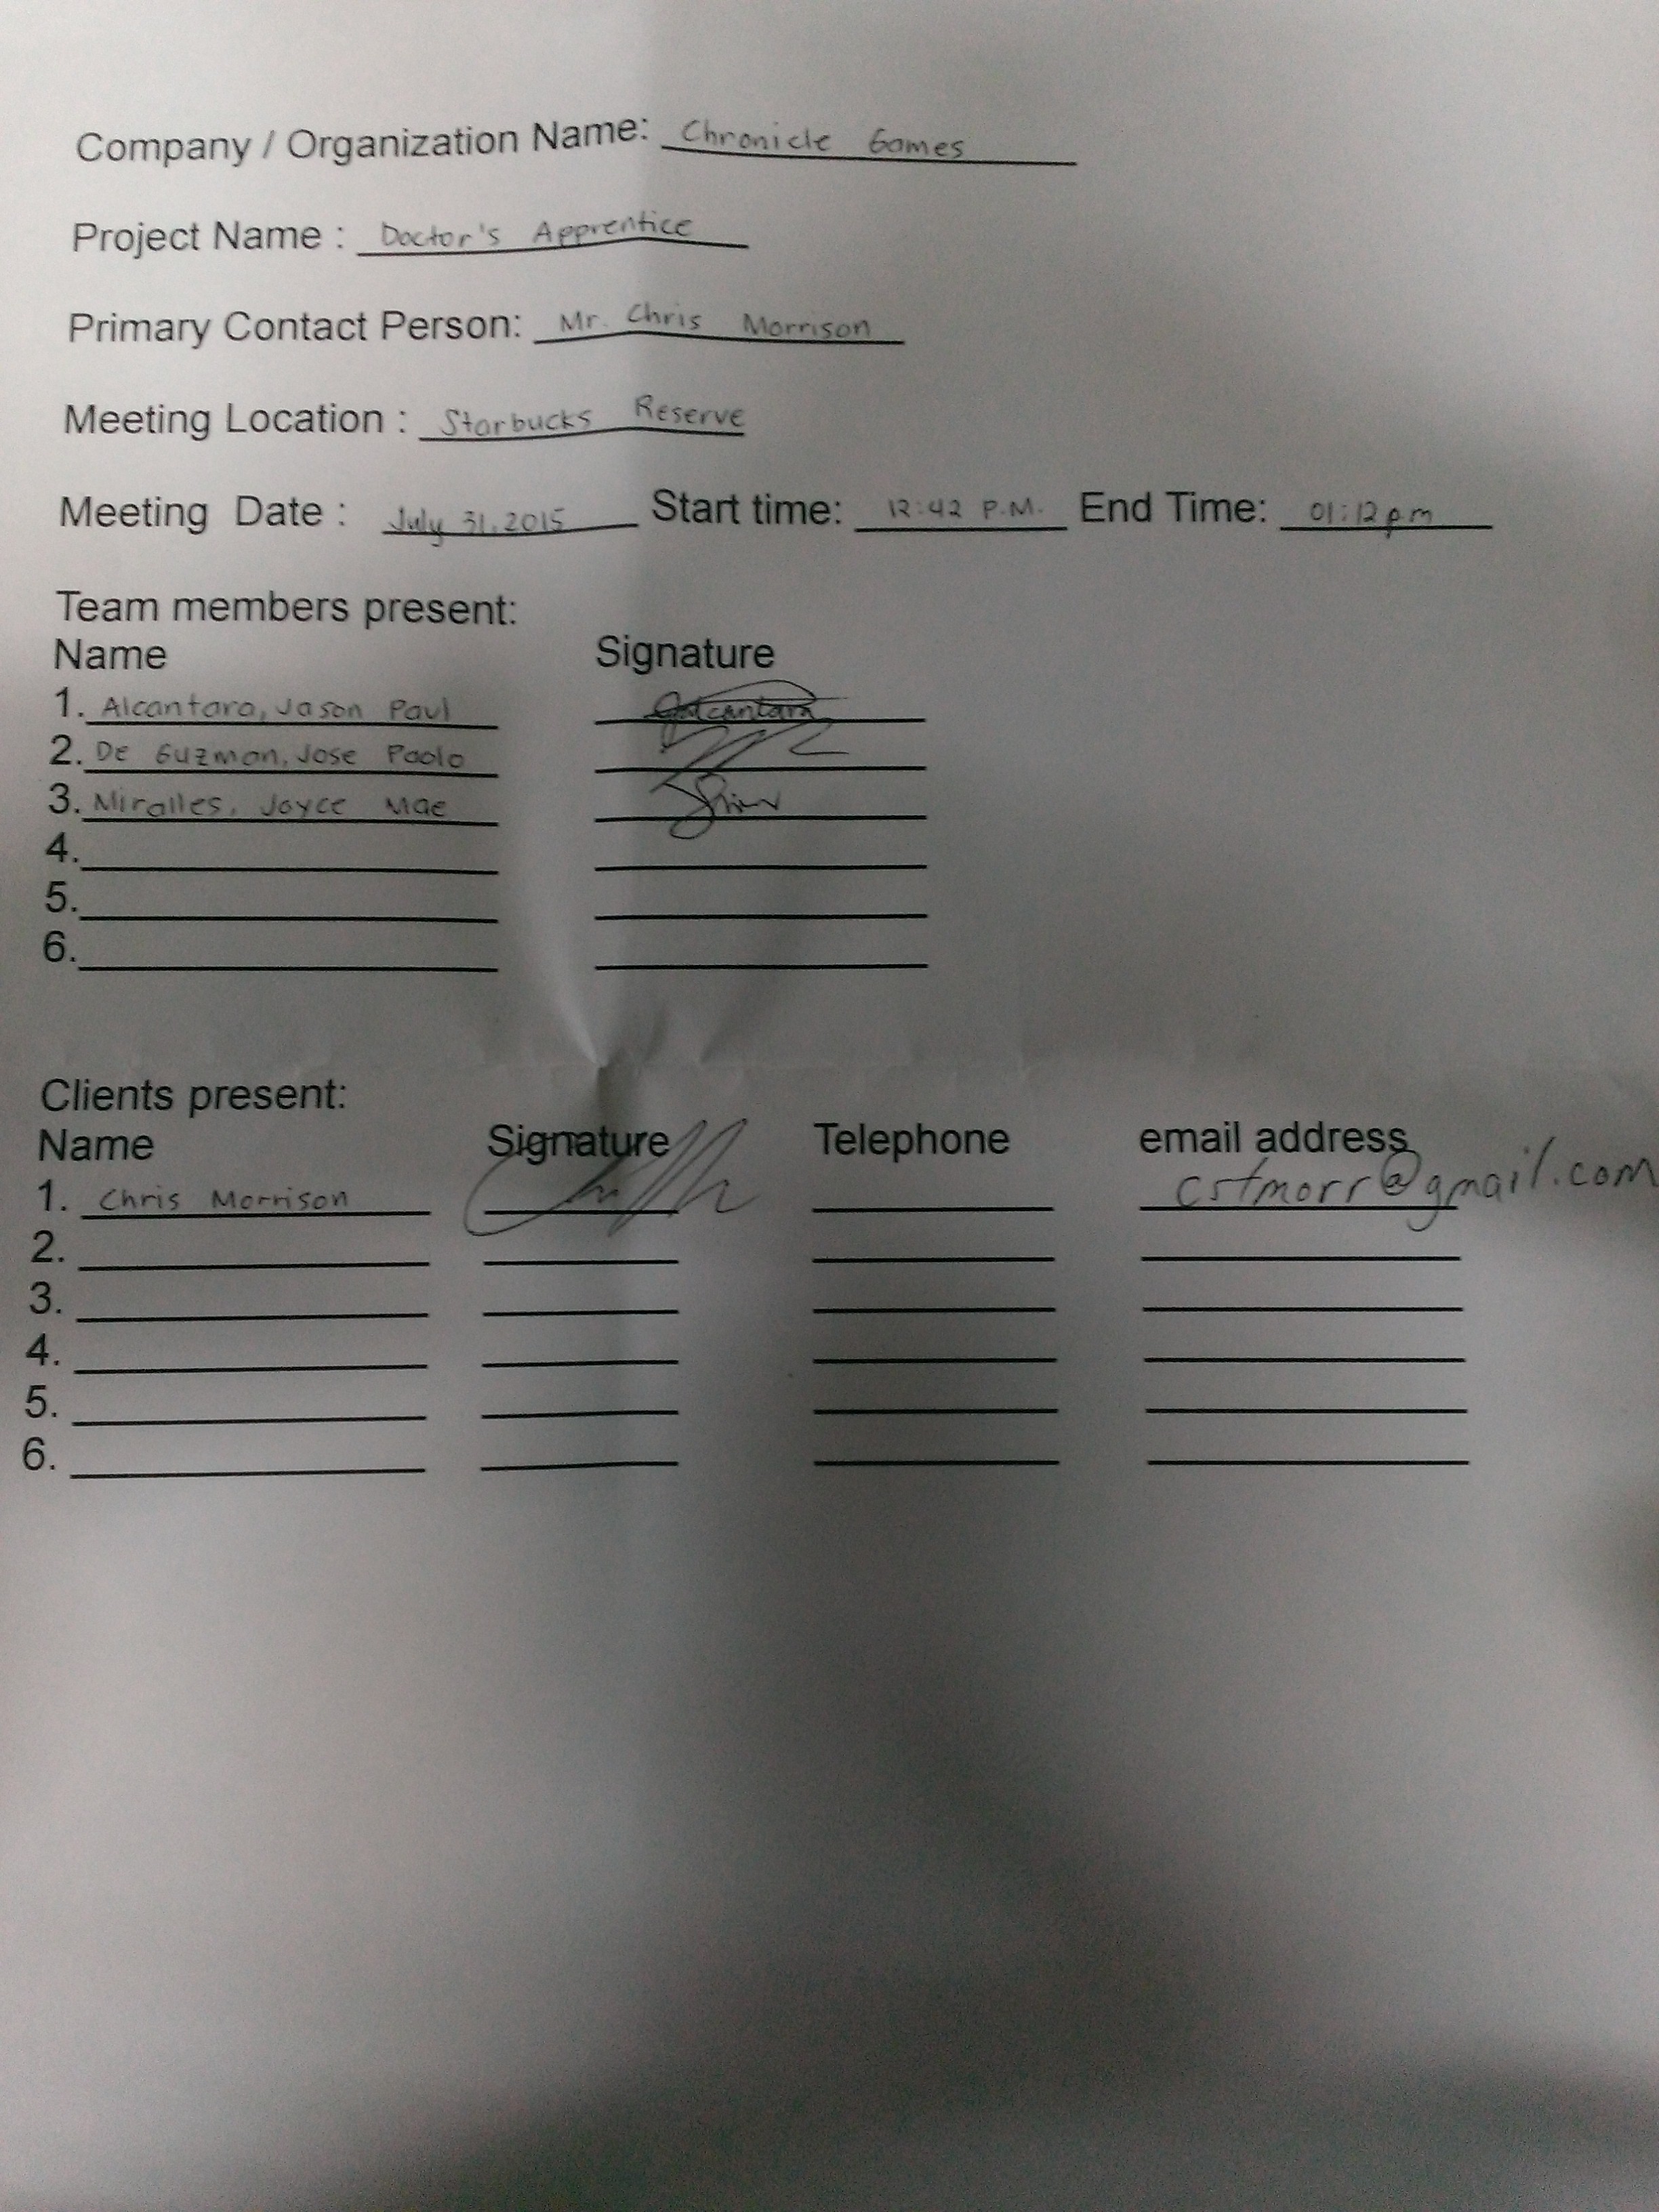 Company / Organization Name: Chronicle Games
Project Name : Doctor's Apprentice
Primary Contact Person: Mr. Chris Morrison
Meeting Location : Starbucks Reserve
Meeting Date : July 31, 2015 Start time: 12:42 P.M. End Time: 01:12 pm
Team members present:
Name Signature
1. Alcantara, Jason Paul Jalcantara
2. De Guzman, Jose Paolo
3. Miralles, Joyce Mae
4.
5.
6.
Clients present:
Name Signature Telephone email address
1. Chris Morrison cstmorr@gmail.com
2.
3.
4.
5.
6.